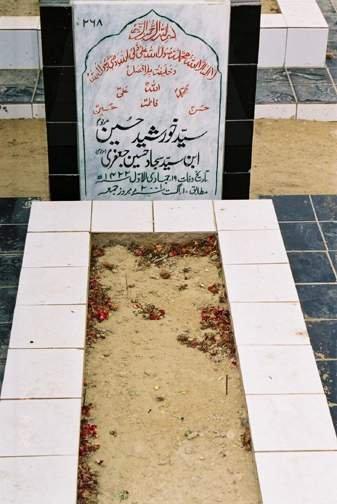 ۲۶۸
بسم اللہ الرحمن الرحیم
لا الہ الا اللہ محمد رسول اللہ علی ولی اللہ وصی رسول اللہ
وخلیفتہ بلا فصل
اللہ
محمد علی
فاطمہ
حسن حسین
سید خورشید حسین
ابن سید سجاد حسین جعفری
تاریخ وفات ۱۹ جمادی الاول ۱۴۲۲ھ
مطابق ۱۰ اگست ۲۰۰۱ء بروز جمعہ